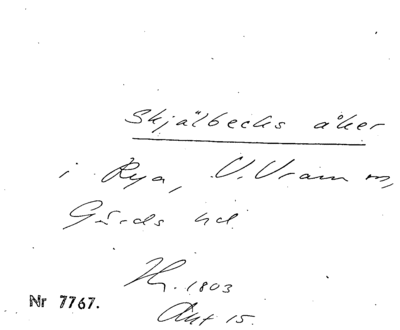 Skjälbecks åker
i Rya, V. Vram sn,
Gärds hd
Hr. 1803
Akt 15.
Nr 7767.